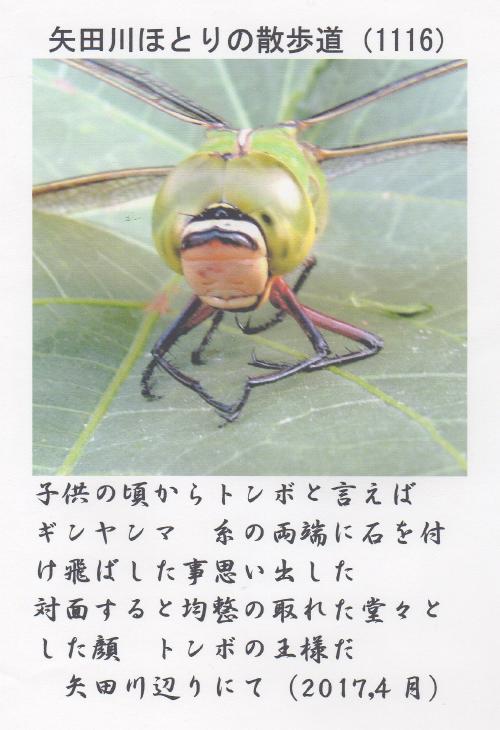 矢田川ほとりの散歩道（1116）
子供の頃からトンボと言えば
ギンヤンマ　糸の両端に石を付
け飛ばした事思い出した
対面すると均整の取れた堂々と
した顔　トンボの王様だ
矢田川辺りにて（2017,4月）